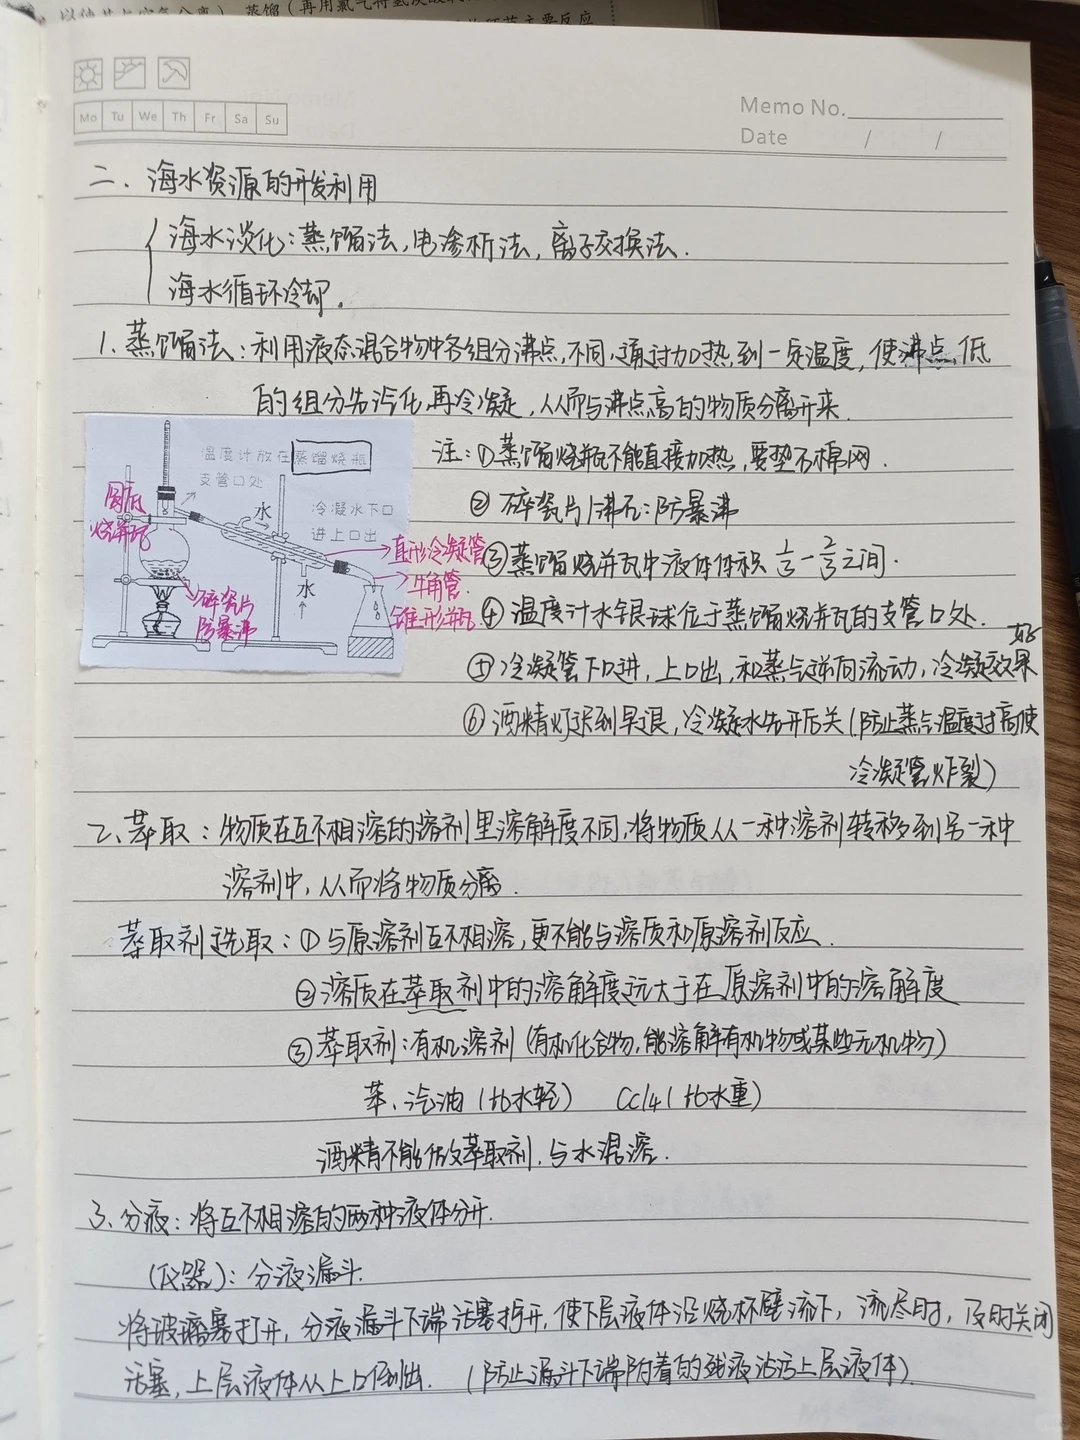 Mo Tu We Th Fr Sa Su
Memo No.
Date / /
二、海水资源的开发利用
海水淡化：蒸馏法，电渗析法，离子交换法．
海水循环冷却．
1、蒸馏法：利用液态混合物中各组分沸点不同，通过加热到一定温度，使沸点低
的组分先汽化再冷凝，从而与沸点高的物质分离开来．
温度计放在蒸馏烧瓶
支管口处
圆底
烧瓶
水
冷凝水下口
进上口出
直形冷凝管
牛角管
锥形瓶
水
碎瓷片
防暴沸
注：①蒸馏烧瓶不能直接加热，要垫石棉网．
② 碎瓷片/沸石：防暴沸
③蒸馏烧瓶中液体体积 1/3 - 2/3之间．
④ 温度计水银球位于蒸馏烧瓶的支管口处．
⑤冷凝管下口进，上口出，和蒸气逆向流动，冷凝效果好
⑥ 酒精灯迟到早退，冷凝水先开后关（防止蒸气温度过高使
冷凝管炸裂）
2、萃取：物质在互不相溶的溶剂里溶解度不同，将物质从一种溶剂转移到另一种
溶剂中，从而将物质分离．
萃取剂选取：①与原溶剂互不相溶，更不能与溶质和原溶剂反应．
②溶质在萃取剂中的溶解度远大于在原溶剂中的溶解度
③萃取剂：有机溶剂（有机化合物，能溶解有机物或某些无机物）
苯、汽油（比水轻） CCl4（比水重）
酒精不能做萃取剂，与水混溶．
3、分液：将互不相溶的两种液体分开．
（仪器）：分液漏斗．
将玻璃塞打开，分液漏斗下端活塞打开，使下层液体沿烧杯壁流下，流尽时，及时关闭
活塞，上层液体从上口倒出．（防止漏斗下端附着的残液沾污上层液体）．